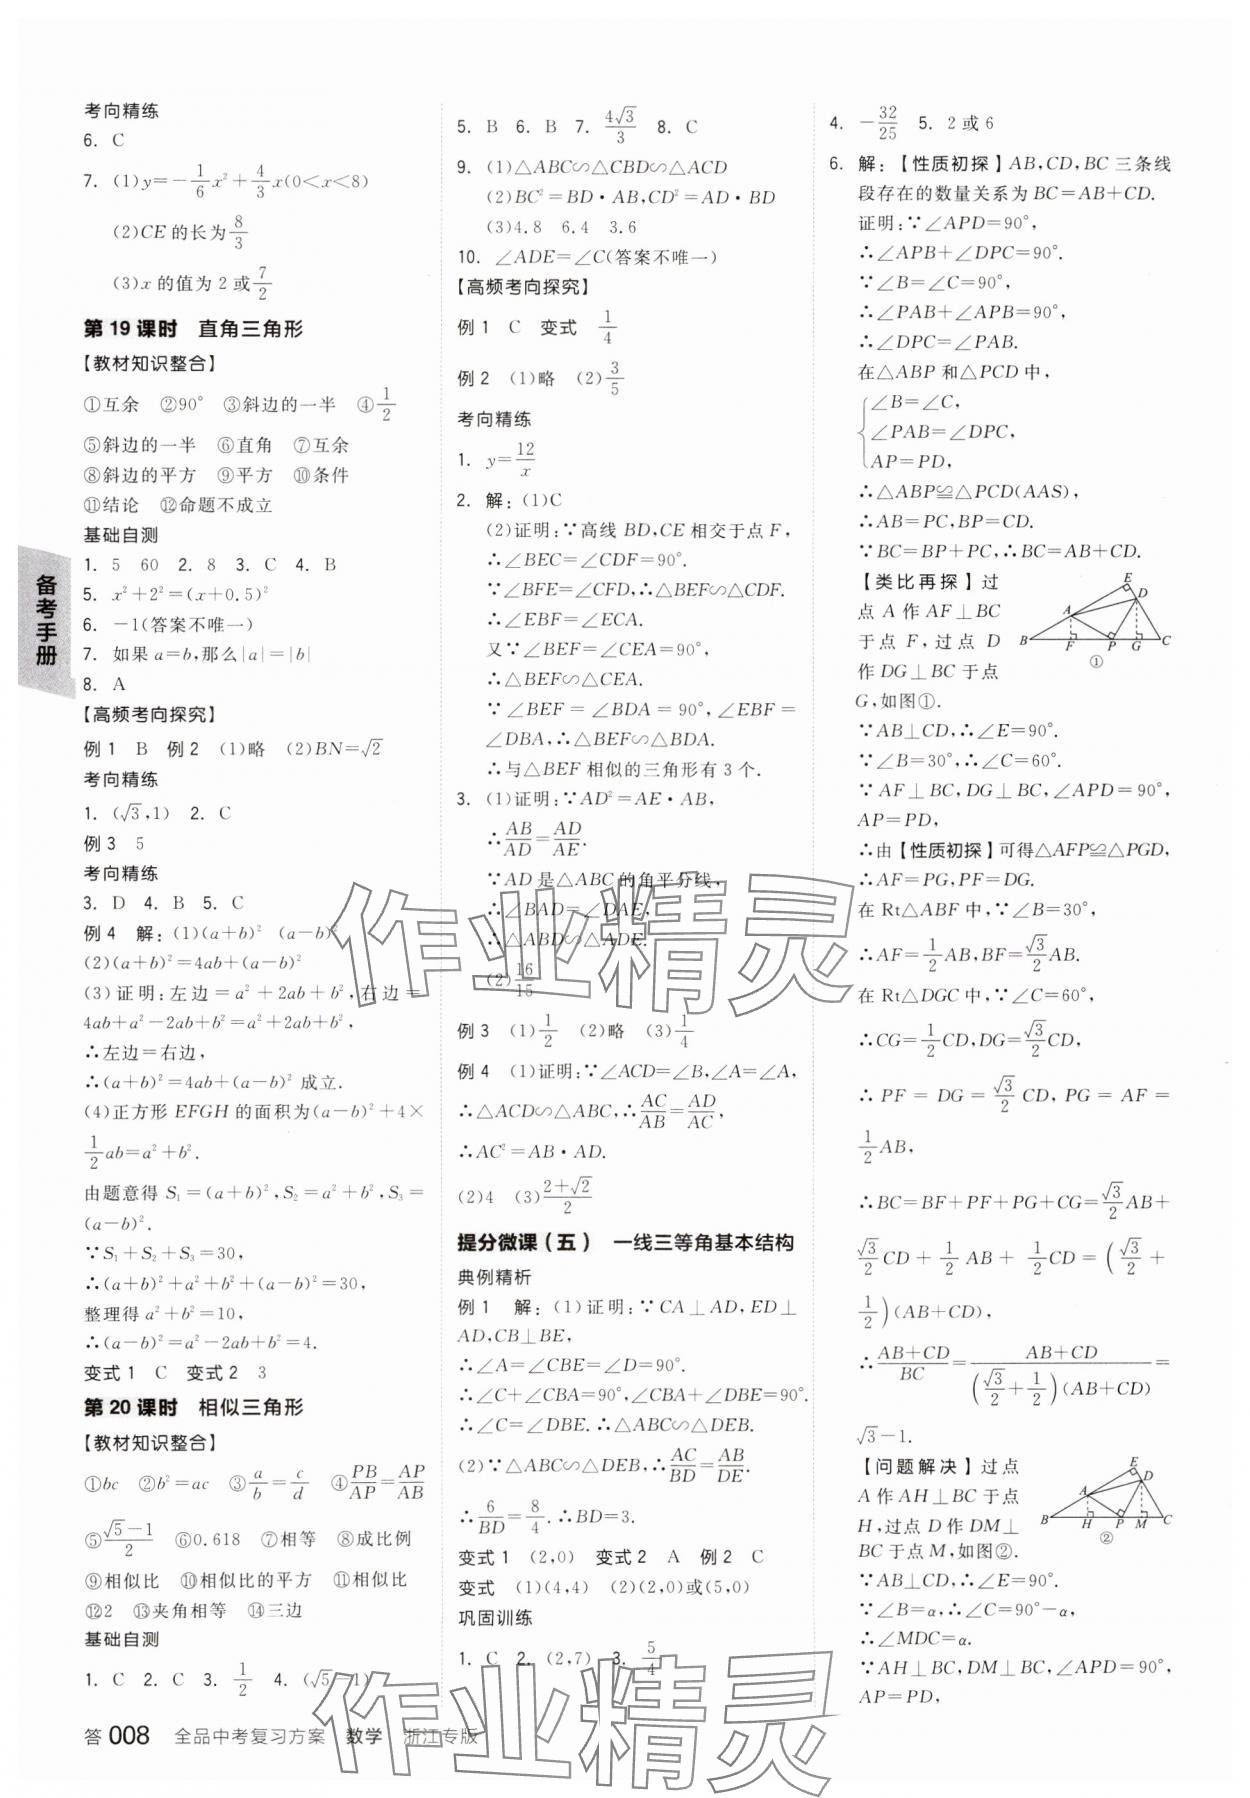 考向精练
6. C
7. (1)y=-1/6x²+4/3x(0<x<8)
(2)CE的长为8/3
(3)x的值为2或7/2
第19课时 直角三角形
【教材知识整合】
①互余 ②90° ③斜边的一半 ④1/2
⑤斜边的一半 ⑥直角 ⑦互余
⑧斜边的平方 ⑨平方 ⑩条件
⑪结论 ⑫命题不成立
基础自测
1. 5 60 2. 8 3. C 4. B
5. x²+2²=(x+0.5)²
6. -1(答案不唯一)
7. 如果a=b,那么|a|=|b|
8. A
【高频考向探究】
例1 B 例2 (1)略 (2)BN=√2
考向精练
1. (√3,1) 2. C
例3 5
考向精练
3. D 4. B 5. C
例4 解:(1)(a+b)² (a-b)²
(2)(a+b)²=4ab+(a-b)²
(3)证明:左边=a²+2ab+b²,右边=
4ab+a²-2ab+b²=a²+2ab+b²,
∴左边=右边,
∴(a+b)²=4ab+(a-b)²成立.
(4)正方形EFGH的面积为(a-b)²+4×
1/2ab=a²+b².
由题意得S₁=(a+b)²,S₂=a²+b²,S₃=
(a-b)².
∵S₁+S₂+S₃=30,
∴(a+b)²+a²+b²+(a-b)²=30,
整理得a²+b²=10,
∴(a-b)²=a²-2ab+b²=4.
变式1 C 变式2 3
第20课时 相似三角形
【教材知识整合】
①bc ②b²=ac ③a/b=c/d ④PB/AP=AP/AB
⑤(√5-1)/2 ⑥0.618 ⑦相等 ⑧成比例
⑨相似比 ⑩相似比的平方 ⑪相似比
⑫2 ⑬夹角相等 ⑭三边
基础自测
1. C 2. C 3. 1/2 4. (√5-1)
5. B 6. B 7. 4√3/3 8. C
9. (1)△ABC∽△CBD∽△ACD
(2)BC²=BD·AB,CD²=AD·BD
(3)4.8 6.4 3.6
10. ∠ADE=∠C(答案不唯一)
【高频考向探究】
例1 C 变式 1/4
例2 (1)略 (2)3/5
考向精练
1. y=12/x
2. 解:(1)C
(2)证明:∵高线BD,CE相交于点F,
∴∠BEC=∠CDF=90°.
∵∠BFE=∠CFD,∴△BEF∽△CDF.
∴∠EBF=∠ECA.
又∵∠BEF=∠CEA=90°,
∴△BEF∽△CEA.
∵∠BEF=∠BDA=90°,∠EBF=
∠DBA,∴△BEF∽△BDA.
∴与△BEF相似的三角形有3个.
3. (1)证明:∵AD²=AE·AB,
∴AB/AD=AD/AE.
∵AD是△ABC的角平分线,
∴∠BAD=∠DAE,
∴△ABD∽△ADE.
(2)16/15
例3 (1)1/2 (2)略 (3)1/4
例4 (1)证明:∵∠ACD=∠B,∠A=∠A,
∴△ACD∽△ABC,∴AC/AB=AD/AC,
∴AC²=AB·AD.
(2)4 (3)(2+√2)/2
提分微课(五) 一线三等角基本结构
典例精析
例1 解:(1)证明:∵CA⊥AD,ED⊥
AD,CB⊥BE,
∴∠A=∠CBE=∠D=90°.
∴∠C+∠CBA=90°,∠CBA+∠DBE=90°.
∴∠C=∠DBE.∴△ABC∽△DEB.
(2)∵△ABC∽△DEB,∴AC/BD=AB/DE.
∴6/BD=8/4.∴BD=3.
变式1 (2,0) 变式2 A 例2 C
变式 (1)(4,4) (2)(2,0)或(5,0)
巩固训练
1. C 2. (2,7) 3. 5/4
4. -32/25 5. 2或6
6. 解:【性质初探】AB,CD,BC三条线
段存在的数量关系为BC=AB+CD.
证明:∵∠APD=90°,
∴∠APB+∠DPC=90°.
∵∠B=∠C=90°,
∴∠PAB+∠APB=90°,
∴∠DPC=∠PAB.
在△ABP和△PCD中,
∠B=∠C,
∠PAB=∠DPC,
AP=PD,
∴△ABP≌△PCD(AAS),
∴AB=PC,BP=CD.
∵BC=BP+PC,∴BC=AB+CD.
【类比再探】过
点A作AF⊥BC
于点F,过点D
作DG⊥BC于点
G,如图①.
E
D
A
B F P G C
①
∵AB⊥CD,∴∠E=90°.
∵∠B=30°,∴∠C=60°.
∵AF⊥BC,DG⊥BC,∠APD=90°,
AP=PD,
∴由【性质初探】可得△AFP≌△PGD,
∴AF=PG,PF=DG.
在Rt△ABF中,∵∠B=30°,
∴AF=1/2AB,BF=√3/2AB.
在Rt△DGC中,∵∠C=60°,
∴CG=1/2CD,DG=√3/2CD,
∴PF=DG=√3/2CD,PG=AF=
1/2AB,
∴BC=BF+PF+PG+CG=√3/2AB+
√3/2CD+1/2AB+1/2CD=(√3/2+
1/2)(AB+CD),
∴(AB+CD)/BC=(AB+CD)/((√3/2+1/2)(AB+CD))=
√3-1.
【问题解决】过点
A作AH⊥BC于点
H,过点D作DM⊥
BC于点M,如图②.
E
D
A
B H P M C
②
∵AB⊥CD,∴∠E=90°.
∵∠B=α,∴∠C=90°-α,
∴∠MDC=α.
∵AH⊥BC,DM⊥BC,∠APD=90°,
AP=PD,
备考手册
作业精灵
作业精灵
答008 全品中考复习方案 数学 浙江专版